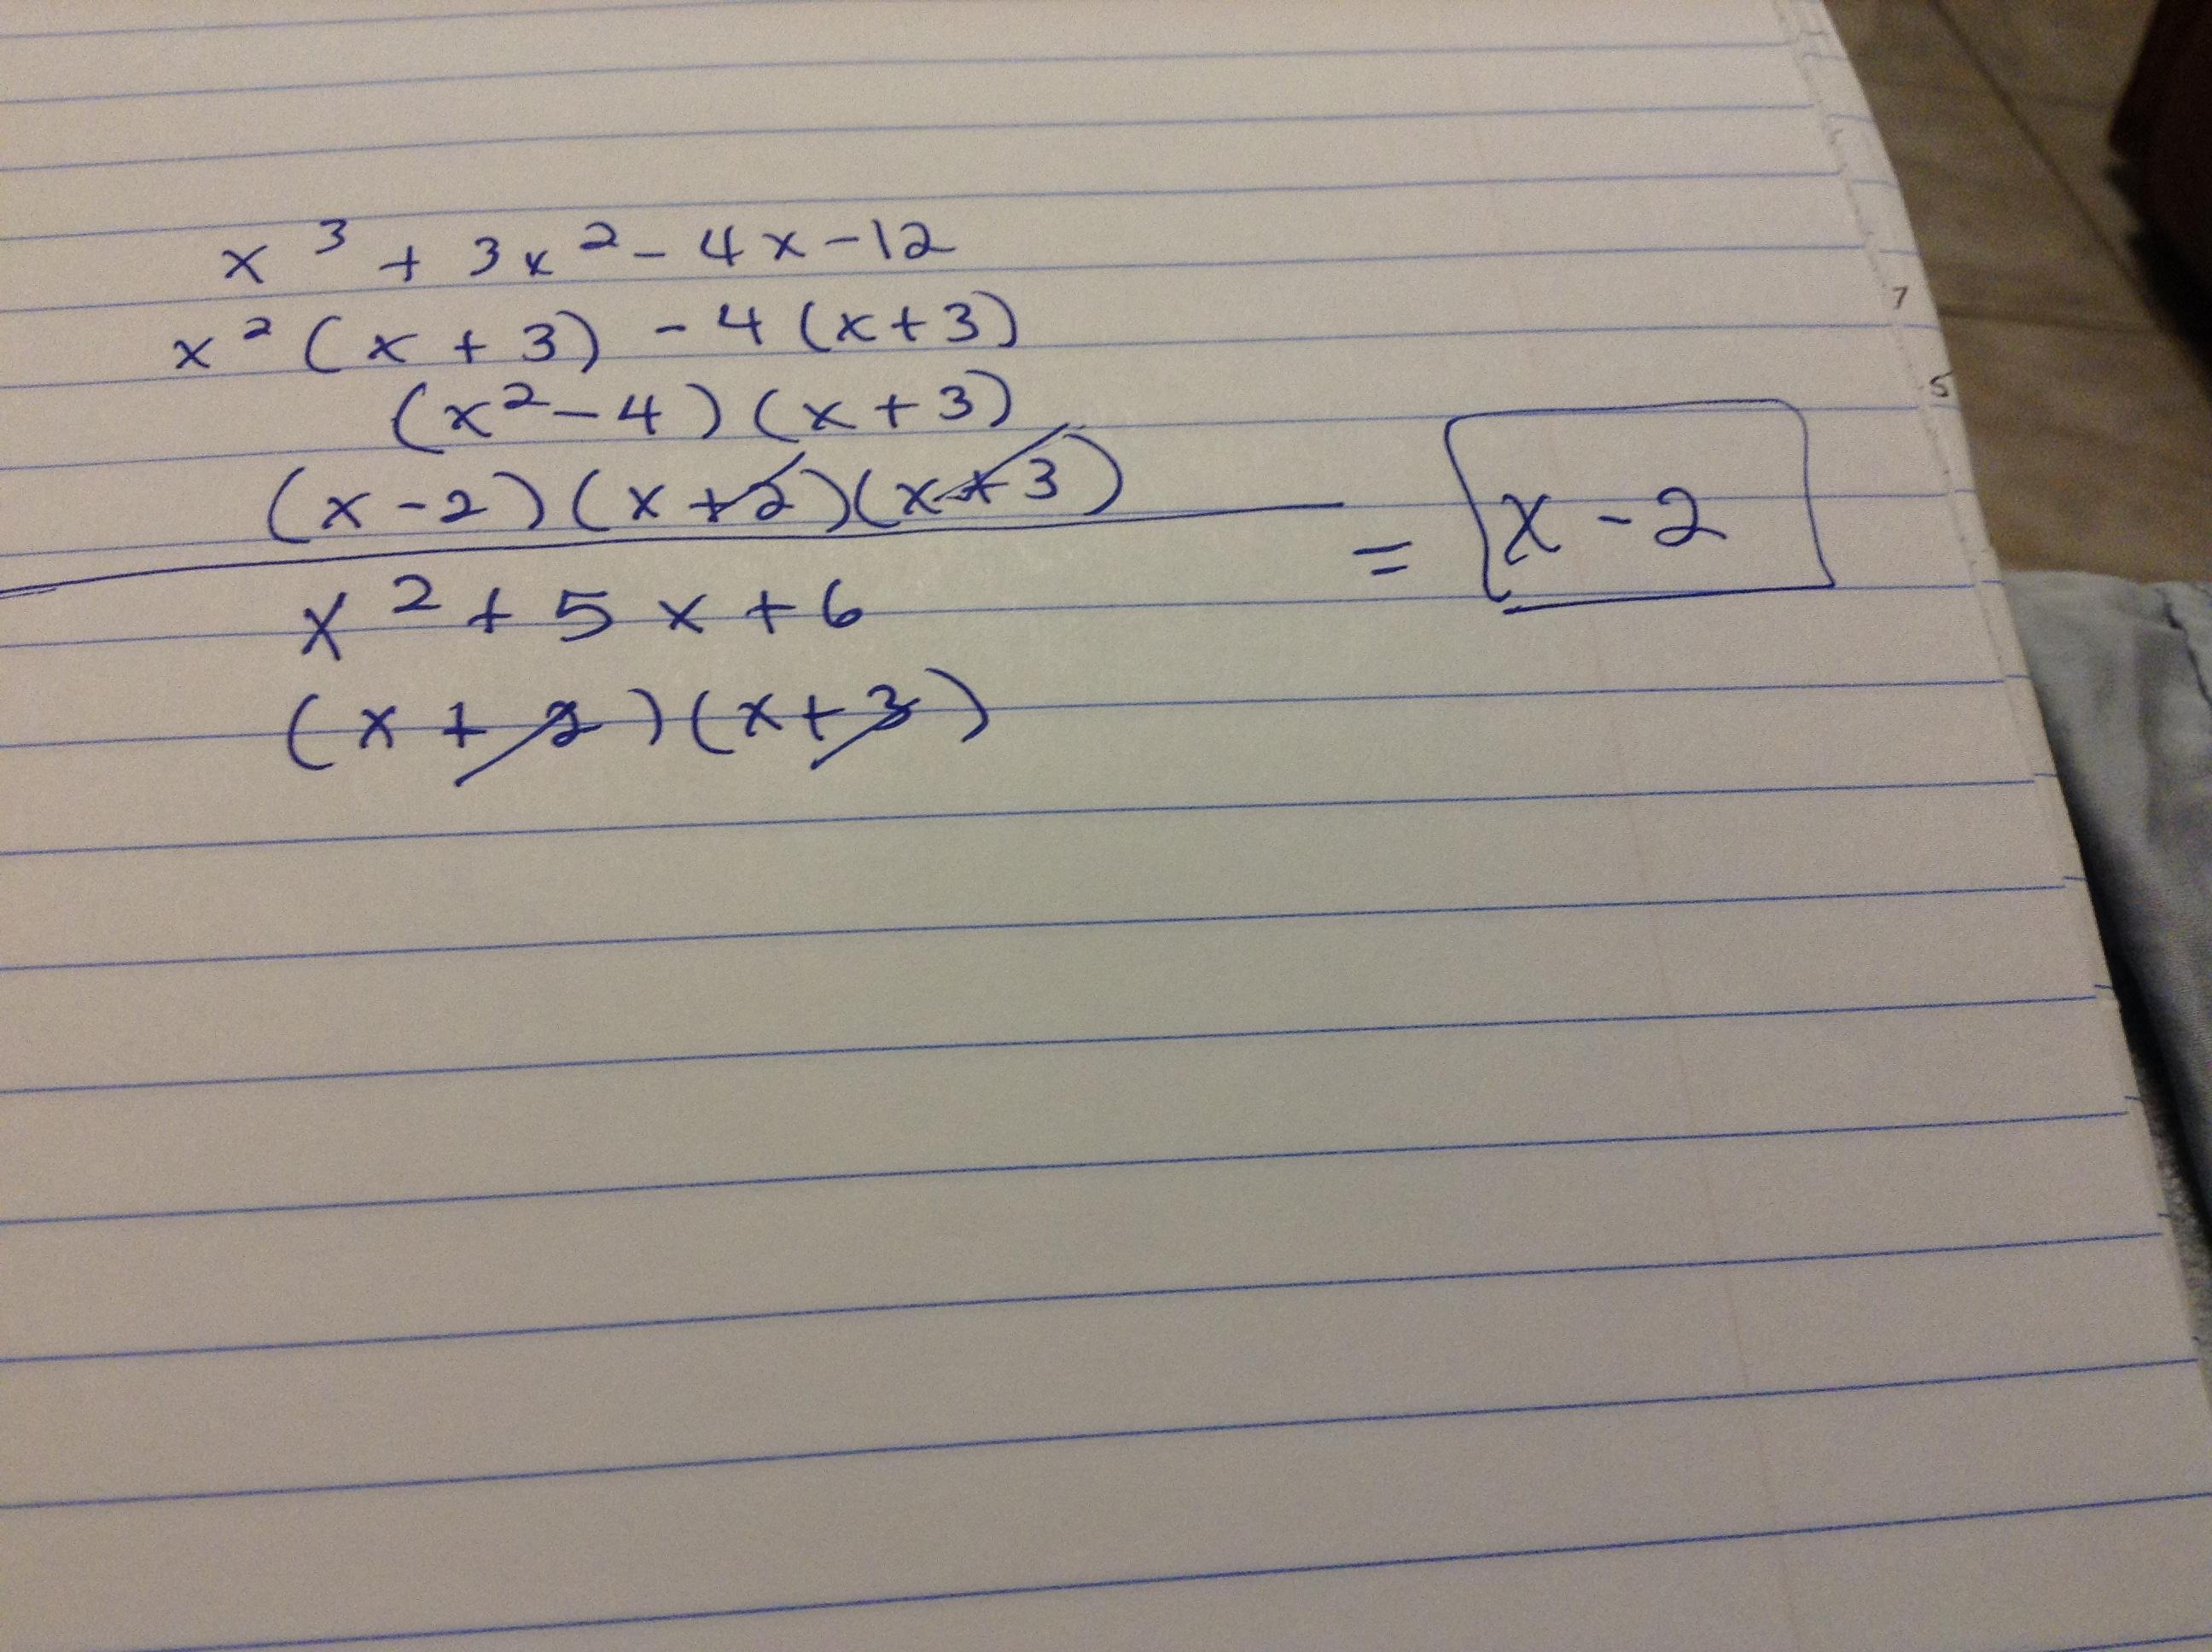 x³ + 3x² - 4x - 12
x² (x + 3) - 4 (x + 3)
(x² - 4) (x + 3)
(x - 2) (x + 2) (x + 3)
= x - 2
x² + 5x + 6
(x + 2) (x + 3)
7
5